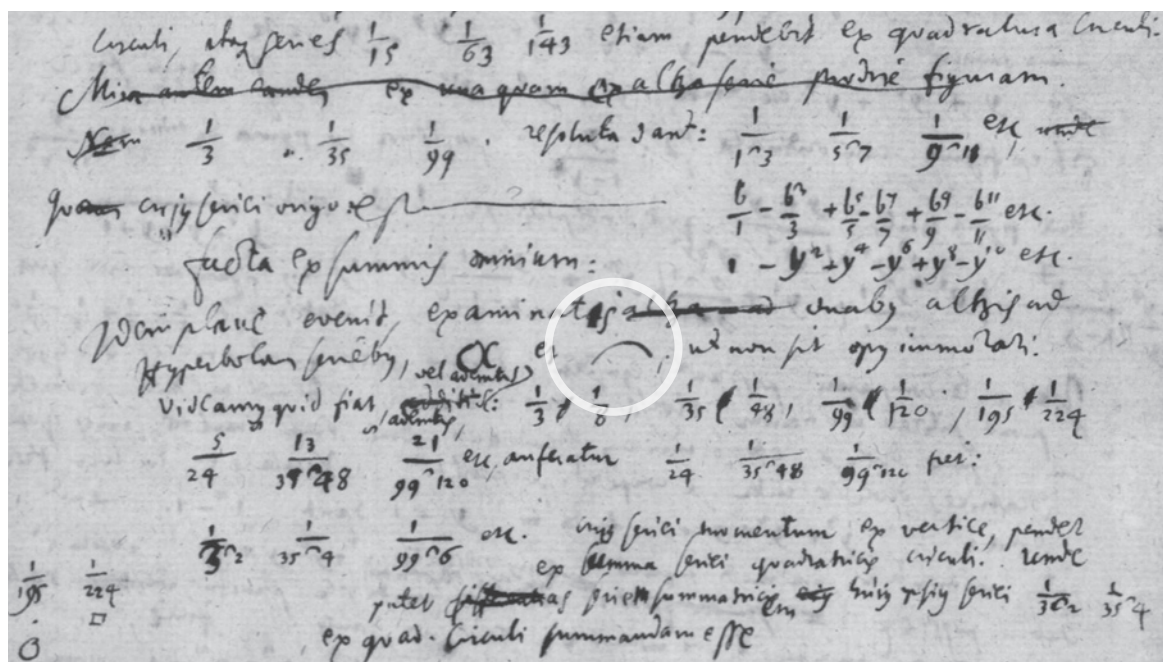 Circuli, atqꝫ series 1/15 1/63 1/143 etiam pendebit ex quadratura Circuli.
Mira autem eandem ex unaquam ex alta serie prodire figuram.
Nam 1/3 1/35 1/99 . resoluta dant: 1/1⌢3 1/5⌢7 1/9⌢11 etc,
cujus seriei origo est b/1 - b³/3 + b⁵/5 - b⁷/7 + b⁹/9 - b¹¹/11 etc.
facta ex summis omnium: 1 - y² + y⁴ - y⁶ + y⁸ - y¹⁰ etc.
Idem plane evenit, examinatis duabus aliis ad
Hyperbolam seriebus, et ⌢, ut non sit opus immorari.
vel ademtis
Videamus quid fiat, additis: 1/3 1/8, 1/35 1/48, 1/99 1/120, 1/195 1/224
5/24 13/35⌢48 21/99⌢120 etc, auferatur 1/24 1/35⌢48 1/99⌢120 fiet:
1/3⌢2 1/35⌢4 1/99⌢6 etc. cujus seriei momentum ex vertice, pendet
ex summa seriei quadratricis circuli. unde
1/195 1/224 patet seriem summatricem hujus ipsius seriei 1/3⌢2 1/35⌢4
ex quad. Circuli summandam esse